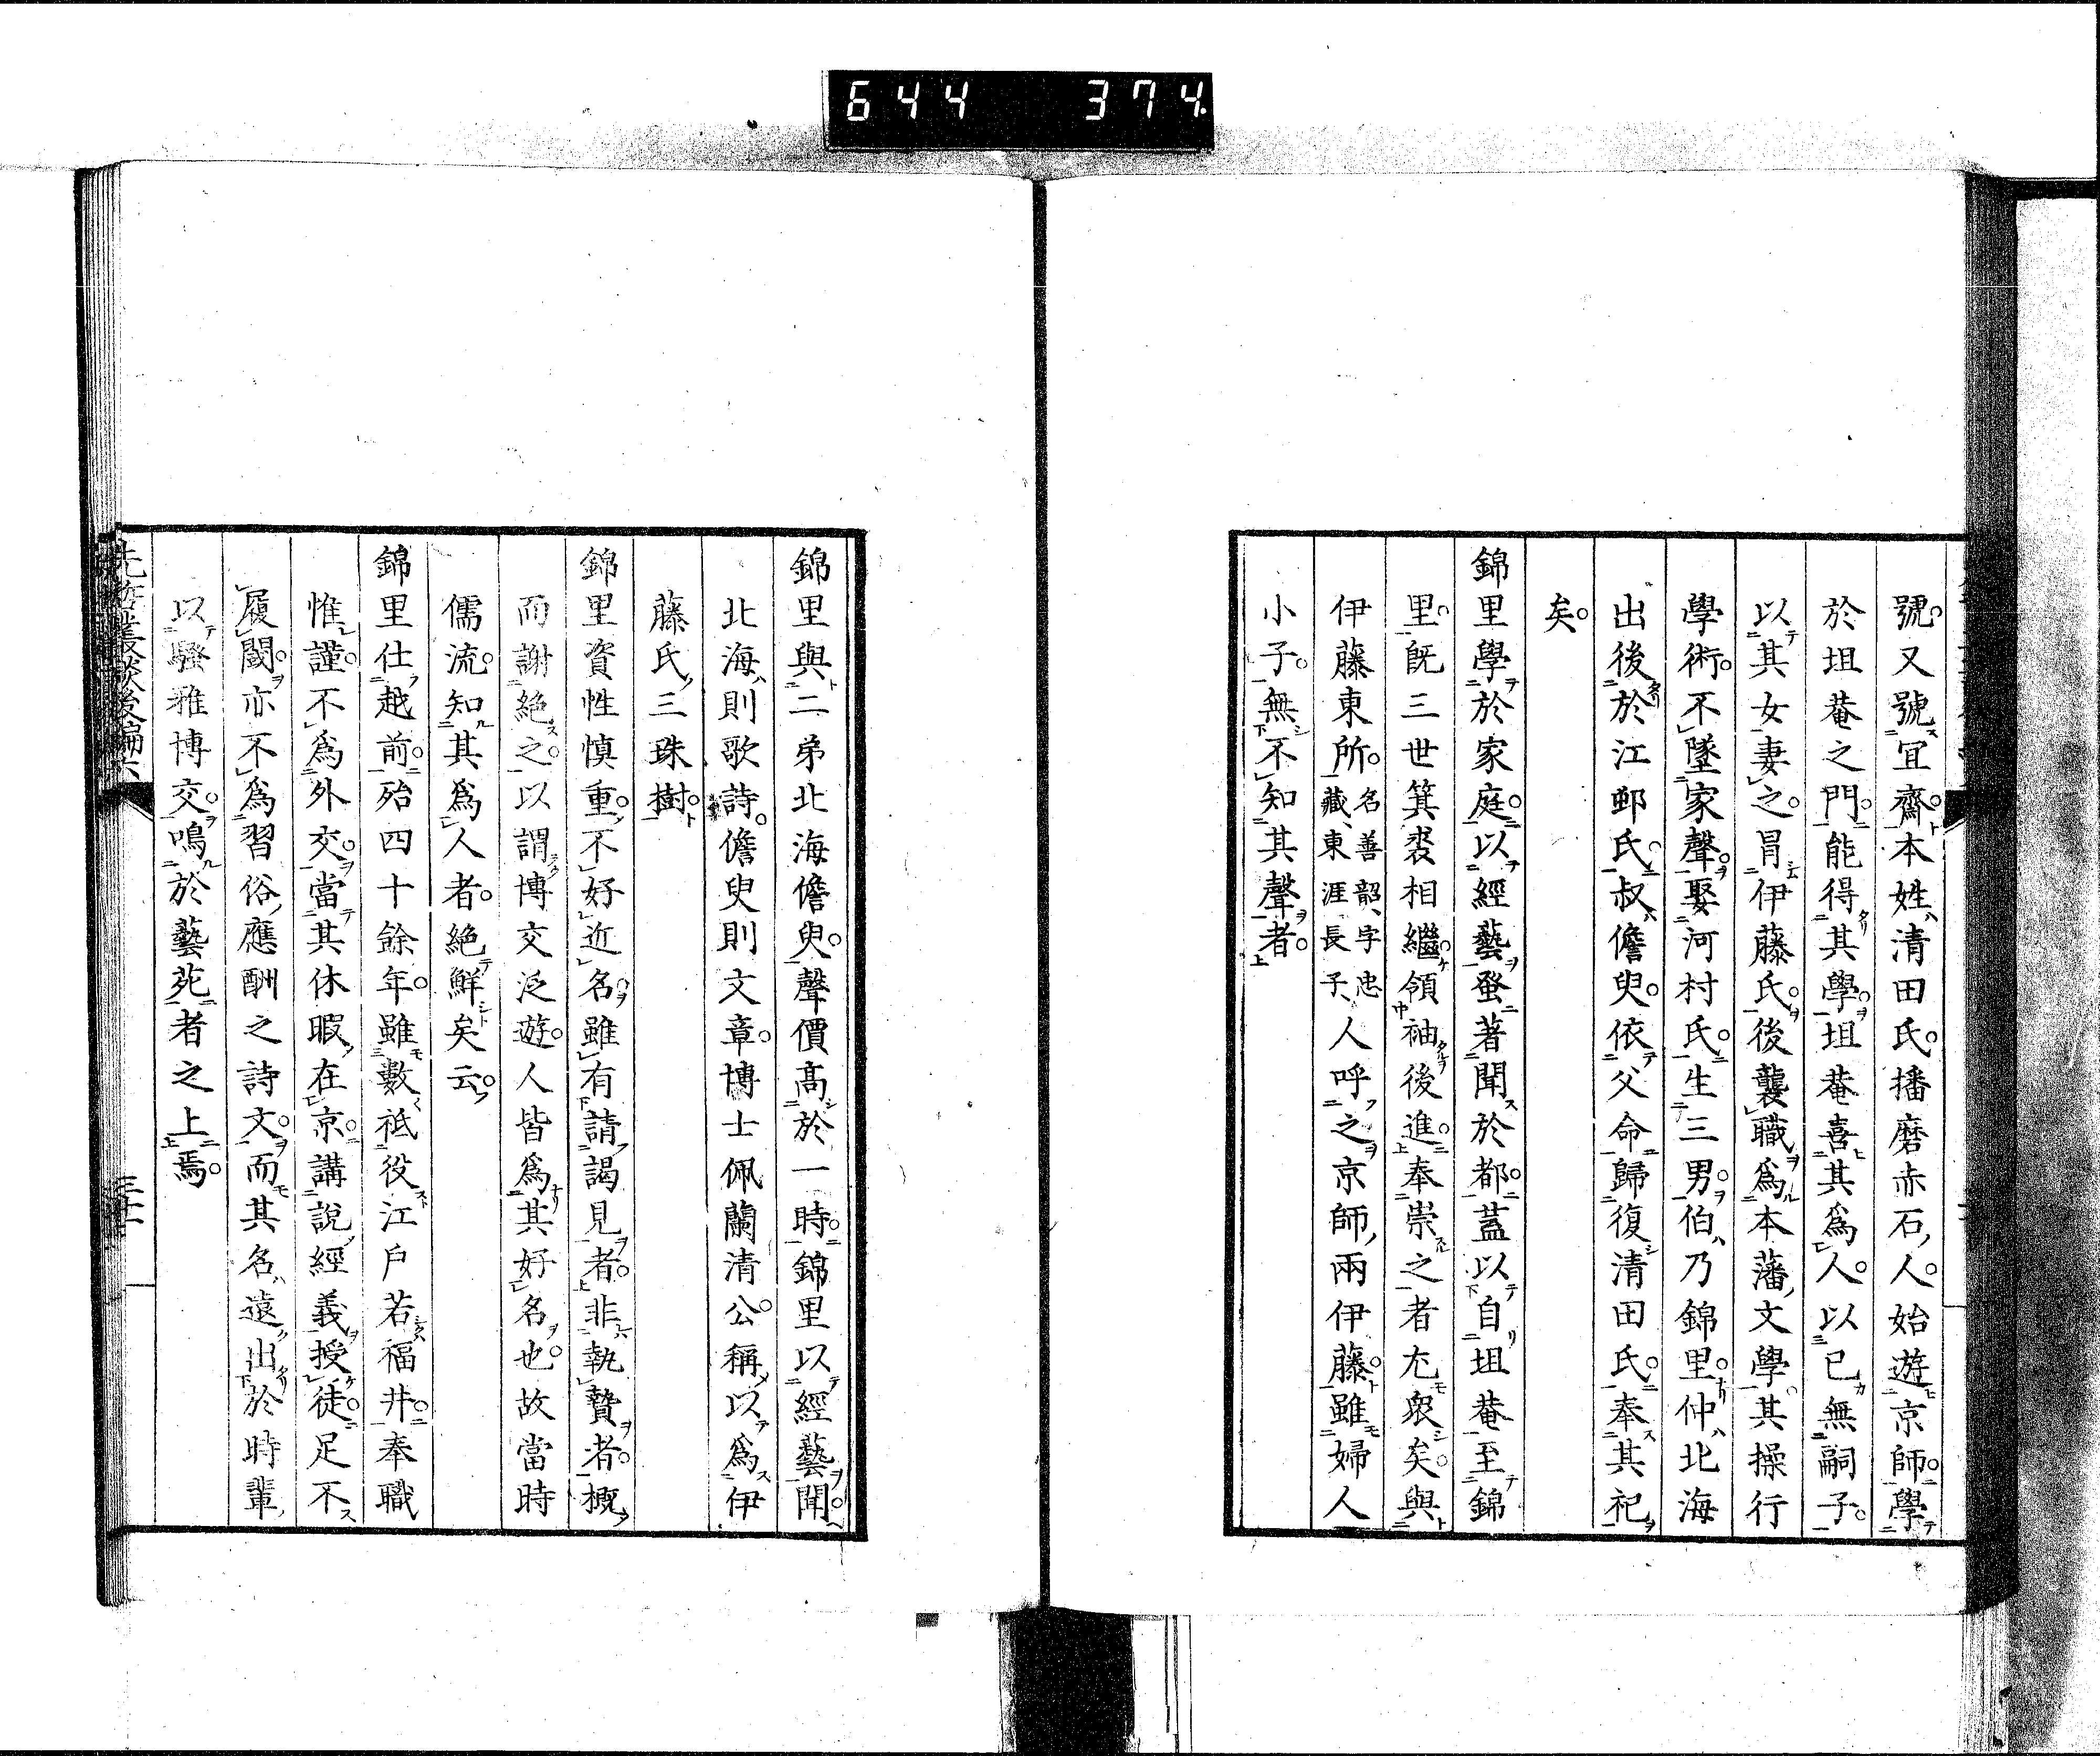 644 374.
號又號宜齋本姓清田氏播磨赤石人始遊京師學
於坦菴之門能得其學坦菴喜其爲人以已無嗣子
以其女妻之冐伊藤氏後襲職爲本藩文學其操行
學術不墜家聲娶河村氏生三男伯乃錦里仲北海
出後於江邨氏叔儋叟依父命歸復清田氏奉其祀
矣
錦里學於家庭以經藝蚤著聞於都蓋以自坦菴至錦
里既三世箕裘相繼領袖後進奉崇之者尤衆矣與
伊藤東所名善韶、字忠藏、東涯長子、人呼之京師兩伊藤雖婦人
小子無不知其聲者
錦里與二弟北海儋叟聲價高於一時錦里以經藝聞
北海則歌詩儋叟則文章博士佩蘭清公稱以爲伊
藤氏三珠樹
錦里資性慎重不好近名雖有請謁見者非執贄者概
而謝絕之以謂博交泛遊人皆爲其好名也故當時
儒流知其爲人者絕鮮矣云
錦里仕越前殆四十餘年雖數祗役江戶若福井奉職
惟謹不爲外交當其休暇在京講說經義授徒足不
履閾亦不爲習俗應酬之詩文而其名遠出於時輩
以騷雅博交鳴於藝苑者之上焉
先哲叢談後編六